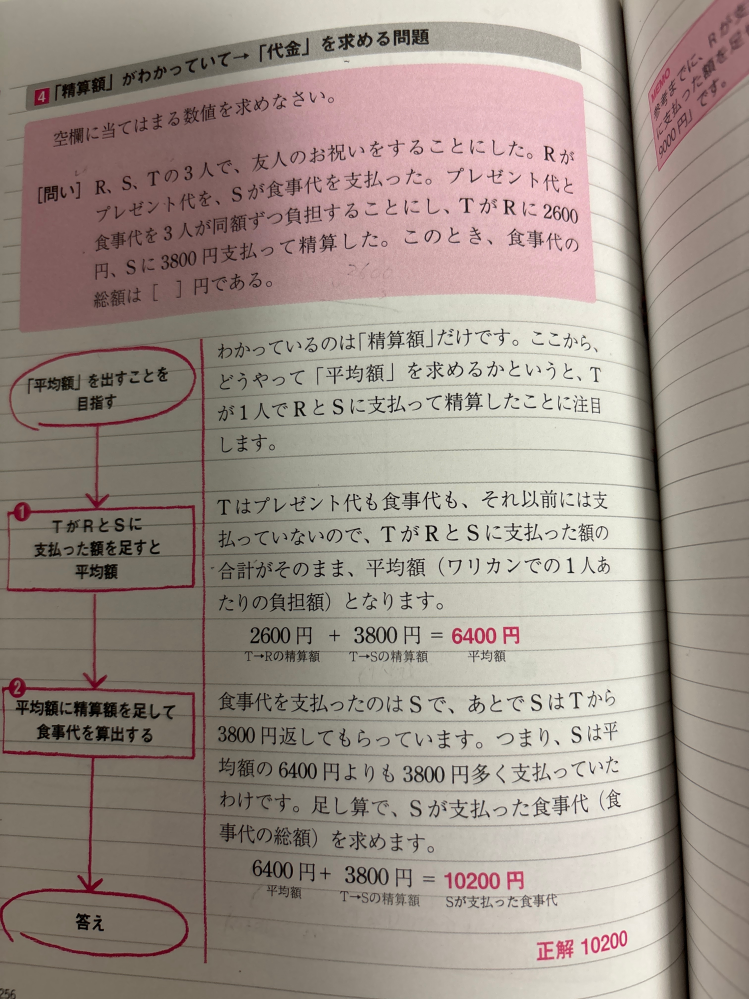 4 「精算額」がわかっていて→「代金」を求める問題
空欄に当てはまる数値を求めなさい。
[問い] R、S、Tの3人で、友人のお祝いをすることにした。Rが
プレゼント代を、Sが食事代を支払った。プレゼント代と
食事代を3人が同額ずつ負担することにし、TがRに2600
円、Sに3800円支払って精算した。このとき、食事代の
総額は[ ]円である。
「平均額」を出すことを
目指す
わかっているのは「精算額」だけです。ここから、
どうやって「平均額」を求めるかというと、T
が1人でRとSに支払って精算したことに注目
します。
1
TがRとSに
支払った額を足すと
平均額
Tはプレゼント代も食事代も、それ以前には支
払っていないので、TがRとSに支払った額の
合計がそのまま、平均額(ワリカンでの1人あ
たりの負担額)となります。
2600円 + 3800円 = 6400円
T→Rの精算額 T→Sの精算額 平均額
2
平均額に精算額を足して
食事代を算出する
食事代を支払ったのはSで、あとでSはTから
3800円返してもらっています。つまり、Sは平
均額の6400円よりも3800円多く支払っていた
わけです。足し算で、Sが支払った食事代(食
事代の総額)を求めます。
6400円+ 3800円 = 10200円
平均額 T→Sの精算額 Sが支払った食事代
答え
正解 10200
256
MEMO
参考までに、Rが
に支払った額を足
9000円」です。